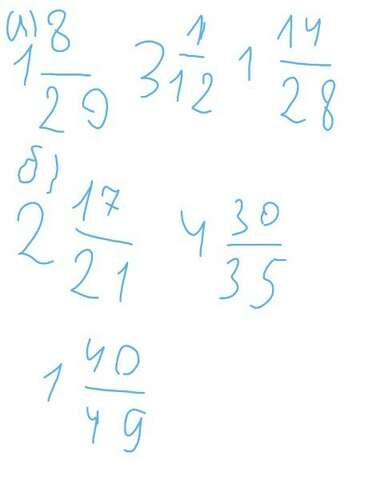 а) 1 8/29 3 1/12 1 14/28
б)
2 17/21 4 30/35
1 40/49